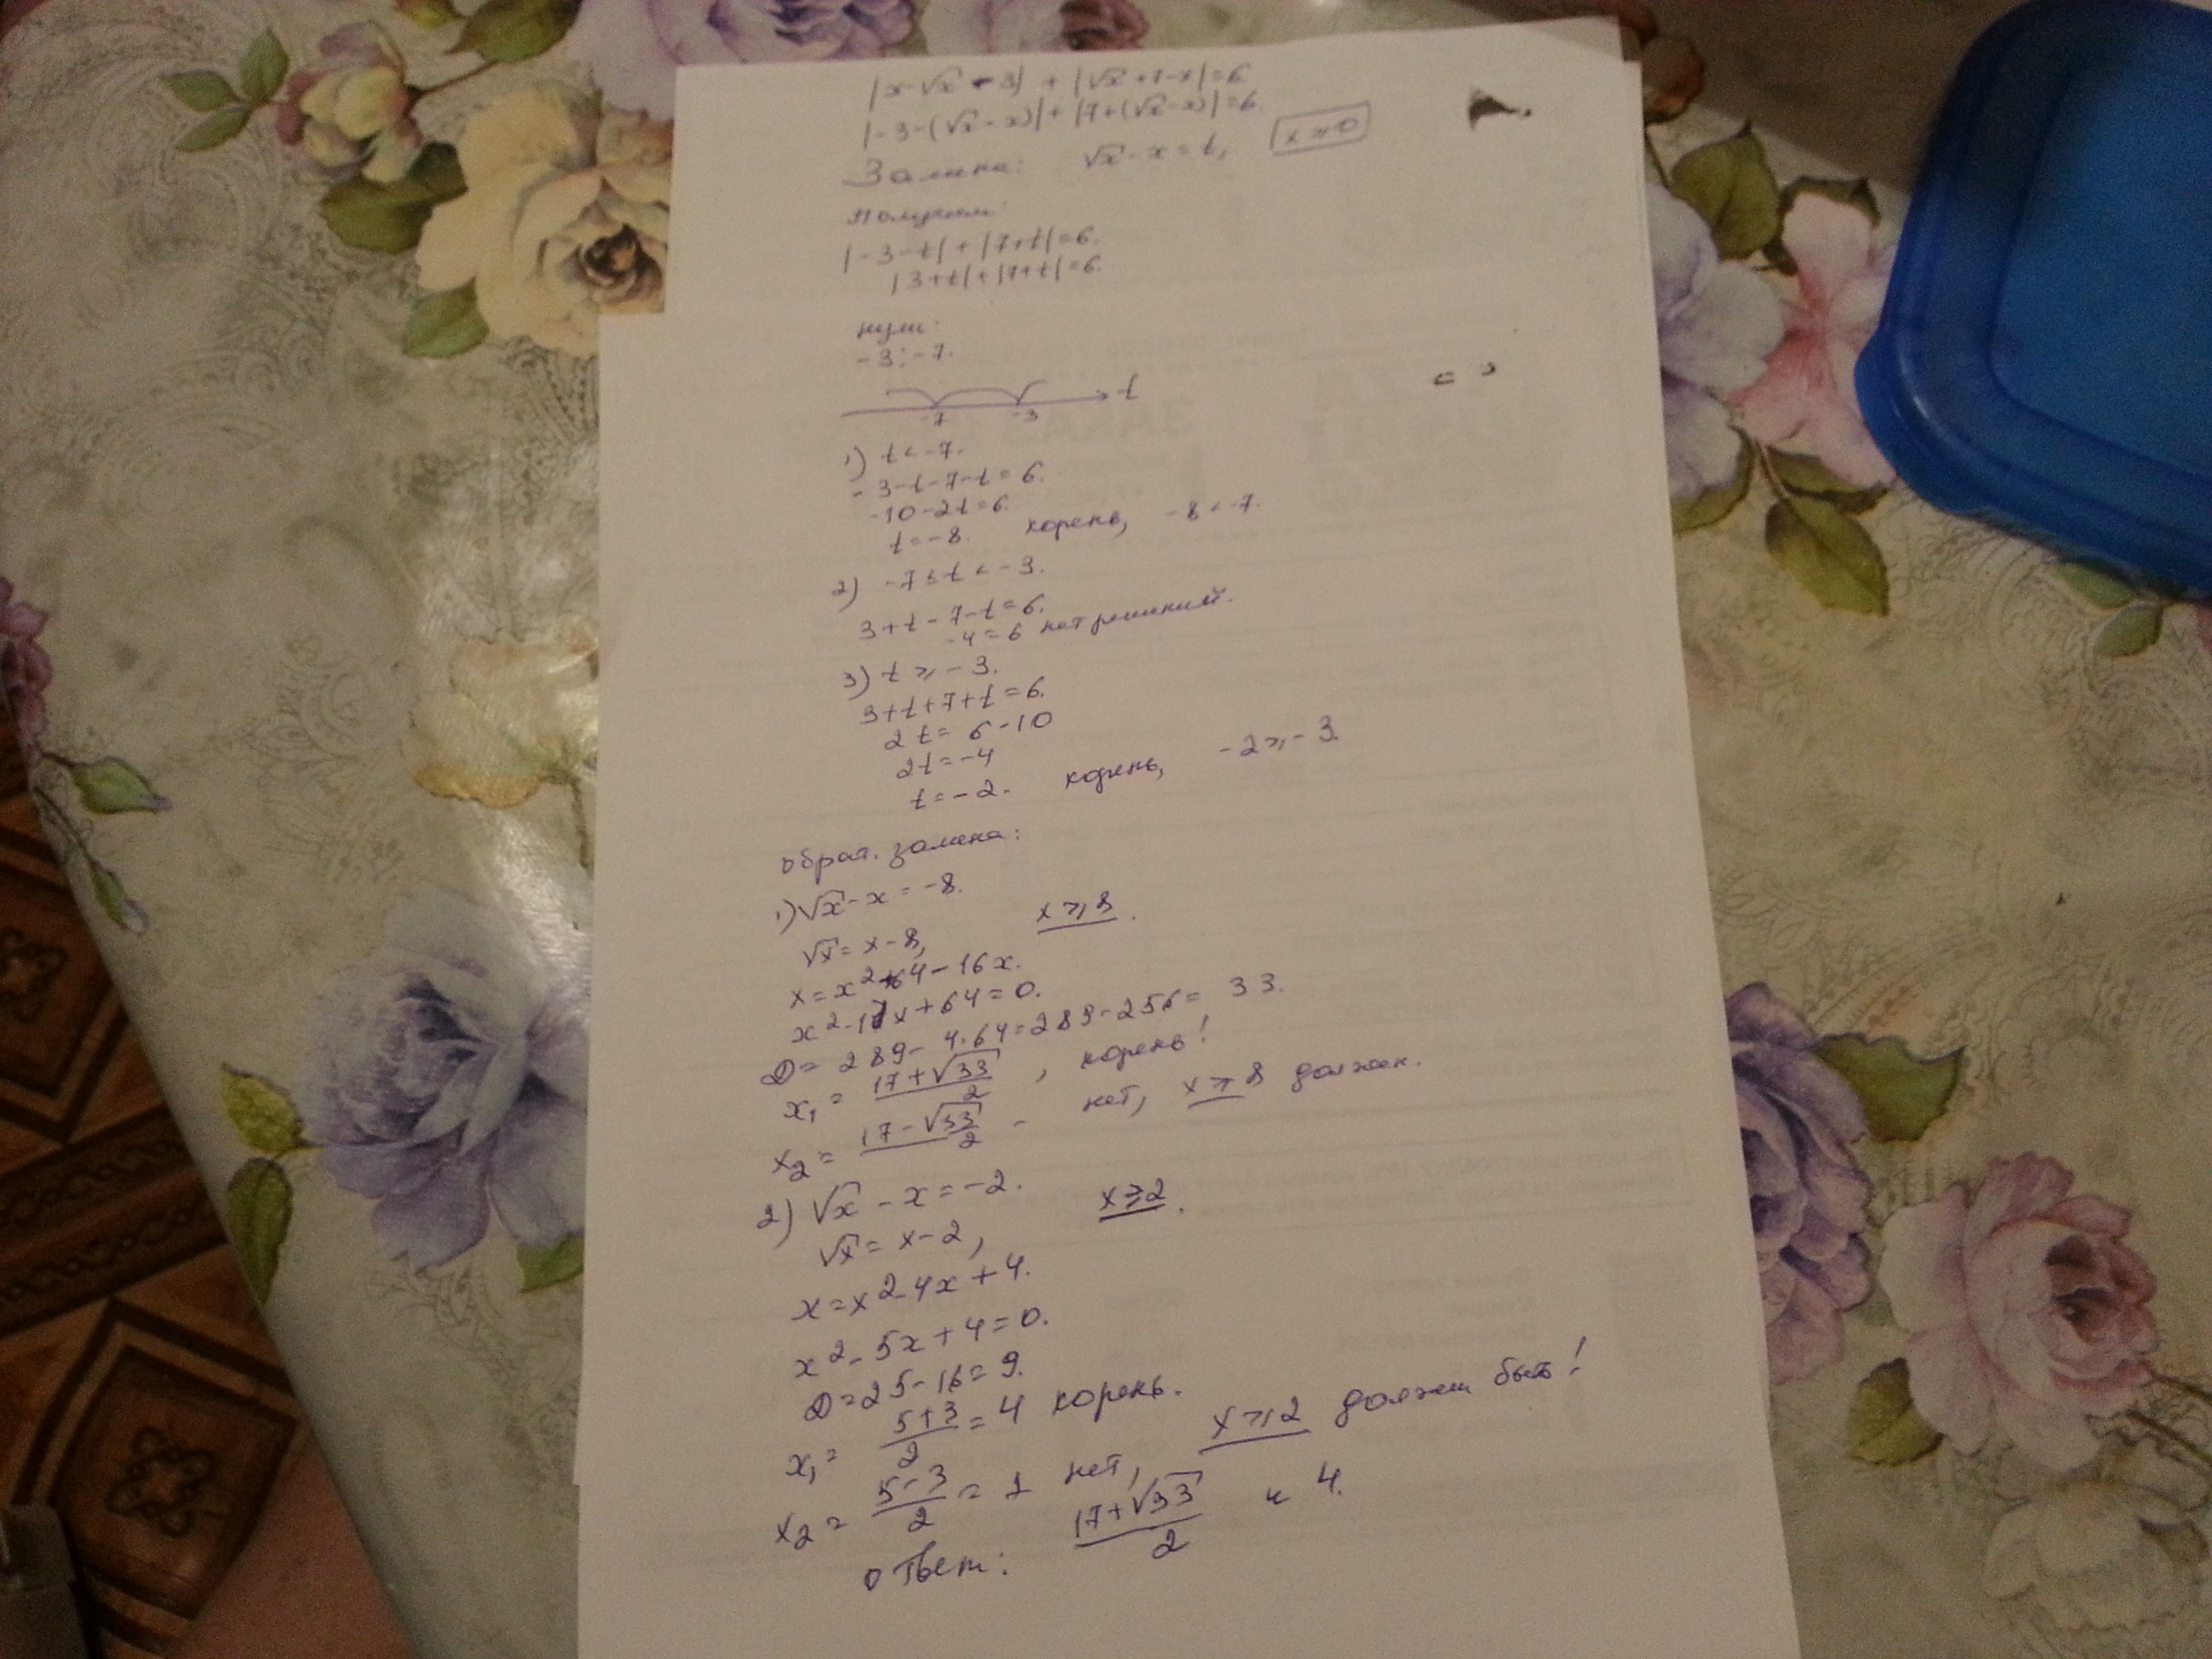 |x-√x-3| + |√x+7-x|=6
|-3-(√x-x)|+|7+(√x-x)|=6.
Замена: √x-x=t, x≥0
Получаем:
|-3-t|+|7+t|=6.
|3+t|+|7+t|=6.
нули:
-3;-7.
-7 -3 t
1) t<-7.
-3-t-7-t=6.
-10-2t=6.
t=-8. корень, -8<-7.
2) -7≤t<-3.
3+t-7-t=6.
-4=6 нет решений.
3) t≥-3.
3+t+7+t=6.
2t=6-10
2t=-4
t=-2. корень, -2≥-3.
обрат. замена:
1) √x-x=-8.
√x=x-8, x≥8.
x=x²+64-16x.
x²-17x+64=0.
D=289-4·64=289-256=33.
x₁=(17+√33)/2, корень!
x₂=(17-√33)/2 - нет, x≥8 должен.
2) √x-x=-2. x≥2.
√x=x-2,
x=x²-4x+4.
x²-5x+4=0.
D=25-16=9.
x₁=(5+3)/2=4 корень.
x₂=(5-3)/2=1 нет, x≥2 должен быть!
ответ: (17+√33)/2 и 4.